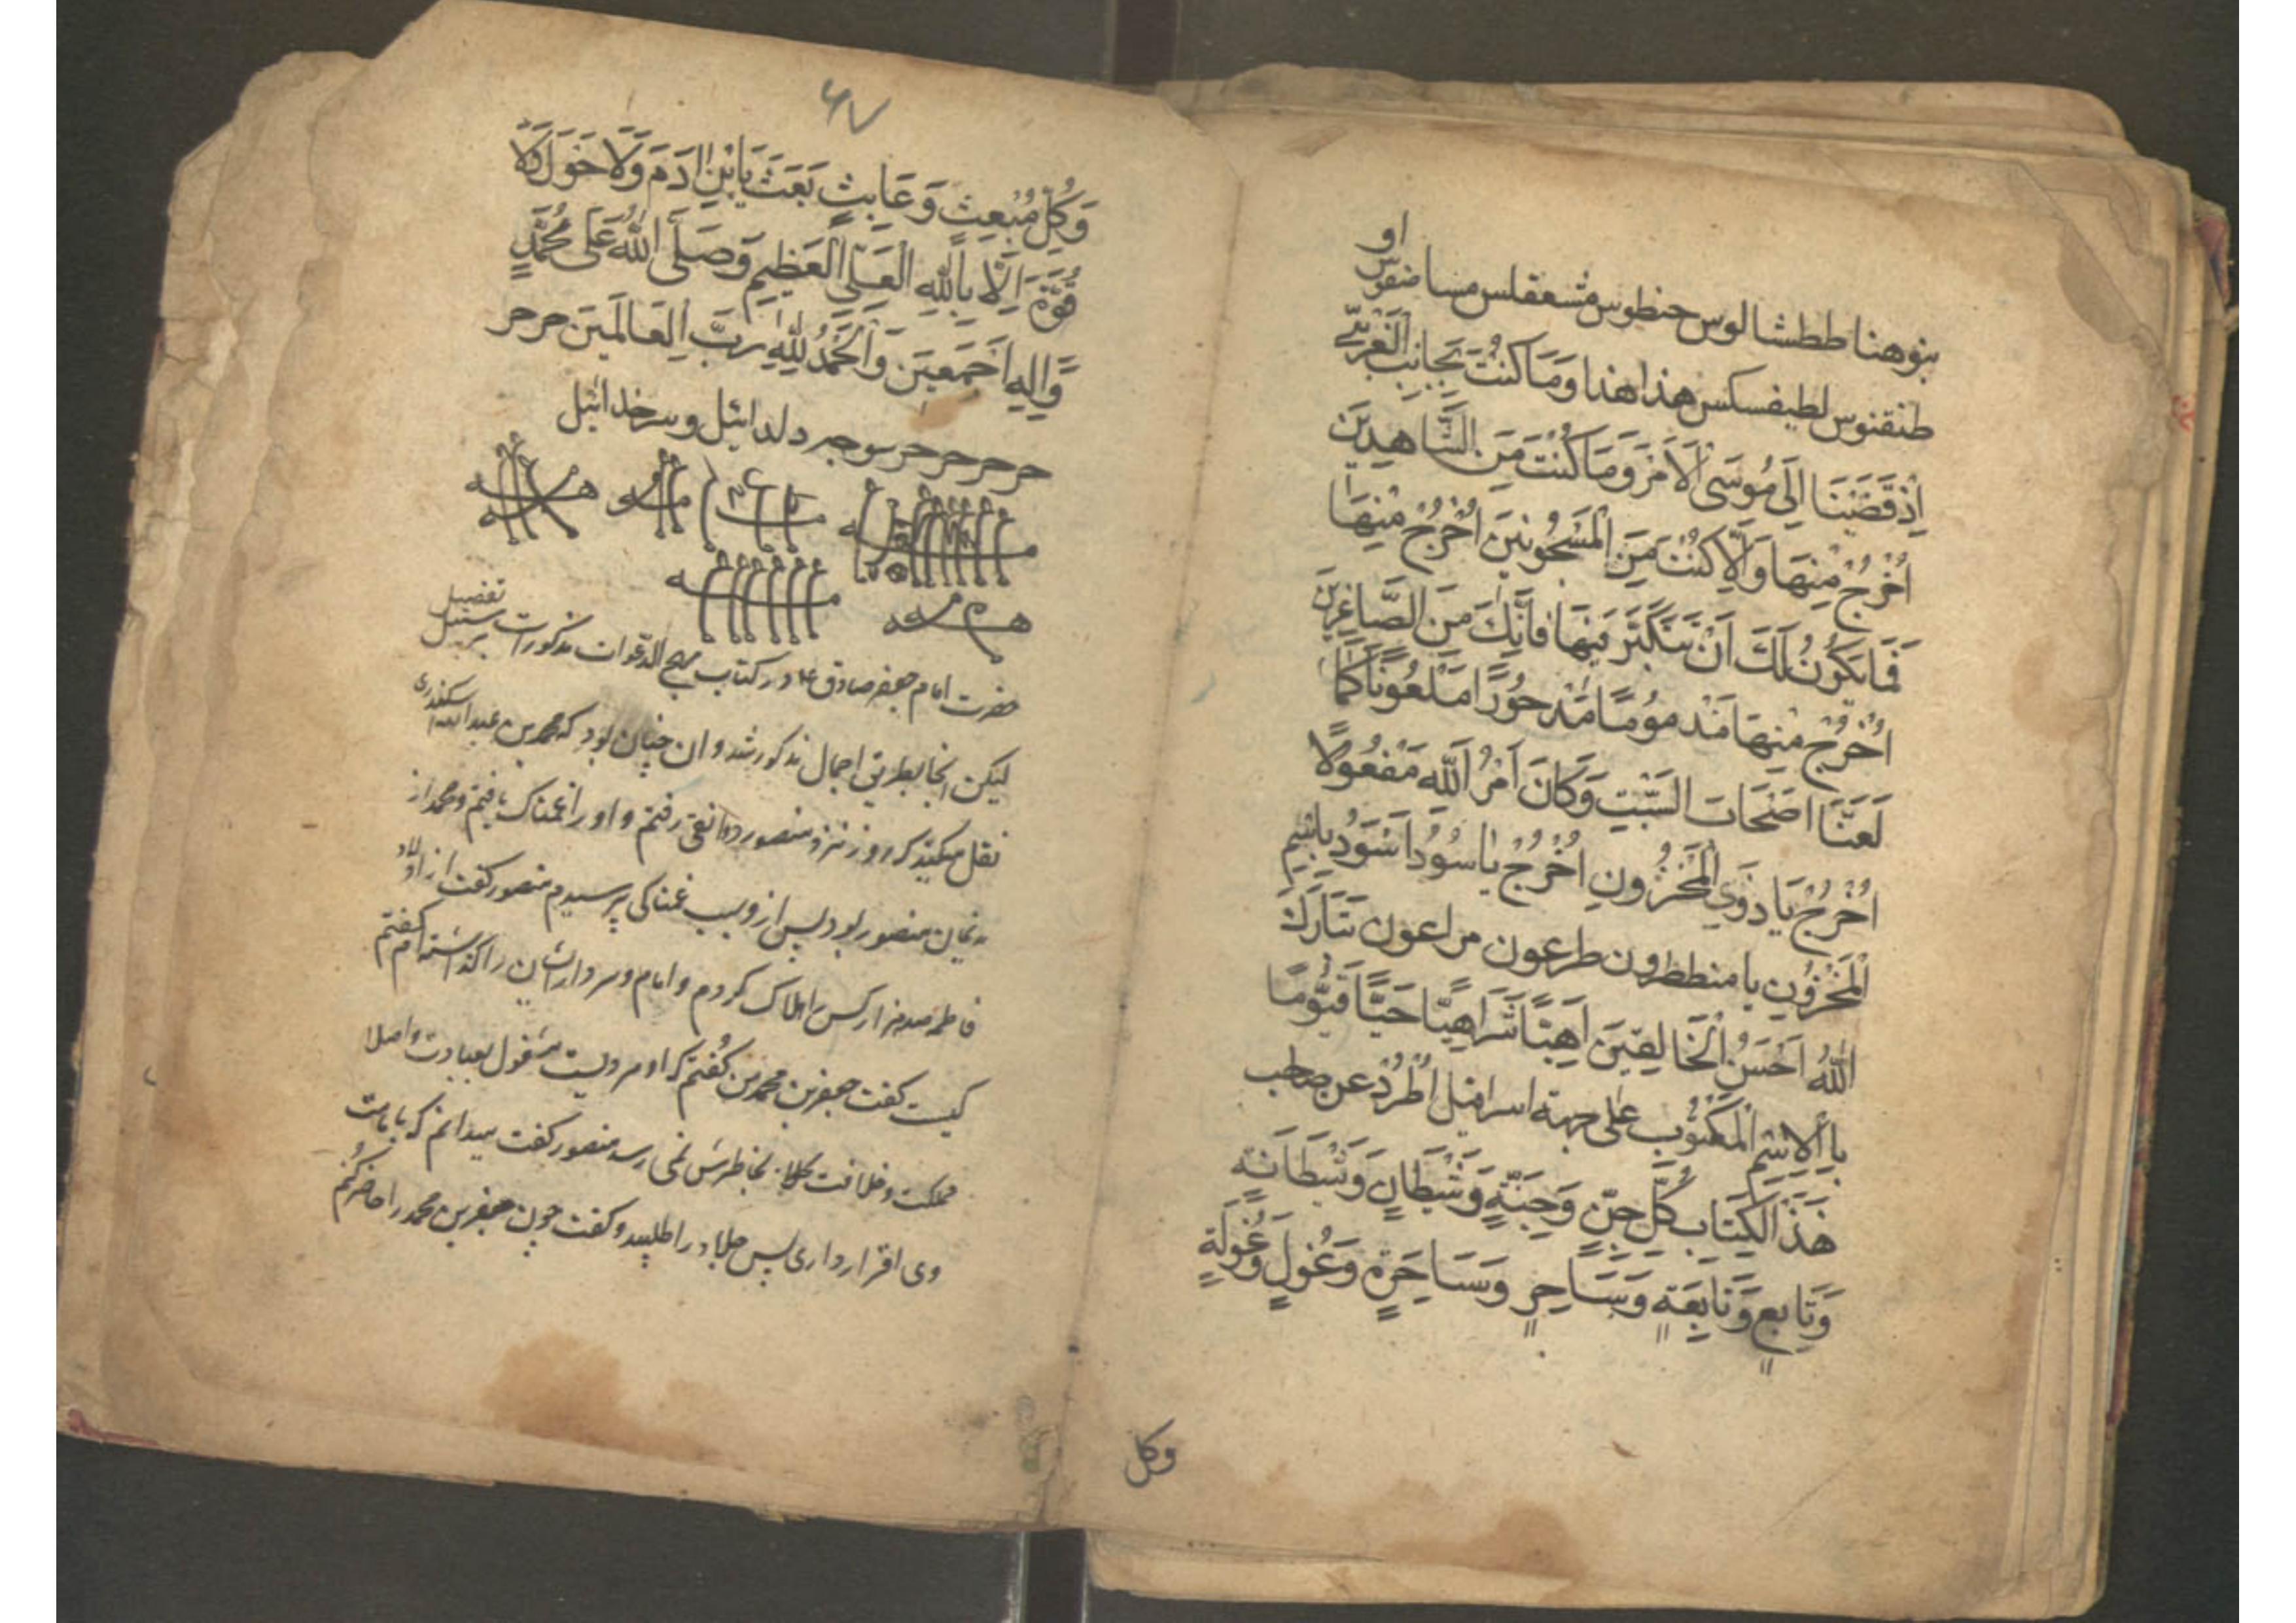 او
بنوهنا ططشالوس حنطوس مشعقلس مسا ضفوس
طنقنوس لطيفسكس هذا هذا وَمَا كُنْتَ بِجَانِبِ الْغَرْبِيِّ
اِذْ قَضَيْنَا اِلَى مُوسَى الْاَمْرَ وَمَا كُنْتَ مِنَ الشَّاهِدِيْنَ
اُخْرُجْ مِنْهَا وَاِلَّا كُنْتَ مِنَ الْمَسْجُونِيْنَ اُخْرُجْ مِنْهَا
فَمَا يَكُوْنُ لَكَ اَنْ تَتَكَبَّرَ فِيْهَا فَاِنَّكَ مِنَ الصَّاغِرِيْنَ
اُخْرُجْ مِنْهَا مَذْمُومًا مَدْحُوْرًا مَلْعُوْنًا كَمَا
لَعَنَّا اَصْحَابَ السَّبْتِ وَكَانَ اَمْرُ اللّٰهِ مَفْعُوْلًا
اُخْرُجْ يَا ذَوِي الْمَخْزُونِ اُخْرُجْ يا سُوْرُ اَسْوَدُ بِاسْمِ
الْمَخْزُوْنِ يا منططرون طرعون مراعون تَبَارَكَ
اللّٰهُ اَحْسَنُ الْخَالِقِيْنَ اَهِيًّا شَرَاهِيًّا حَيًّا قَيُّوْمًا
بِالْاِسْمِ الْمَكْتُوْبِ على جبهة اسرافيل اُطْرُدْ عن صاحب
هَذَ الْكِتَابِ كُلَّ جِنٍّ وَجِنَّةٍ وَشَيْطَانٍ وَشَيْطَانَةٍ
وَتَابِعٍ وَتَابِعَةٍ وَسَاحِرٍ وَسَاحِرَةٍ وَغُوْلٍ وَغُوْلَةٍ
وكل
۶۷
وَكُلِّ مُبْعِثٍ وَعَابِثٍ بَعَثَ يَابْنِ اٰدَمَ وَلَا حَوْلَ وَلَا
قُوَّةَ اِلَّا بِاللّٰهِ الْعَلِيِّ الْعَظِيْمِ وَصَلَّى اللّٰهُ عَلَى مُحَمَّدٍ
وَّاٰلِهِ اَجْمَعِيْنَ وَالْحَمْدُ لِلّٰهِ رَبِّ الْعَالَمِيْنَ حر حر
حر حر حر حر سوجر دلدائيل و سرخدائيل
حضرت امام جعفر صادق ع در کتاب مهج الدعوات مذکورات تفضیل
لیکن اینجا بطریق اجمال مذکور شد و ان چنان بود که محمد بن عبدالله اسکندری
نقل میکند که روز نزد منصور دوانقی رفتم و او را غمناک یافتم و محمد از
ندیمان منصور بود پس از و سبب غمناکی پرسیدم منصور گفت از اولاد
فاطمه صد هزار کس را هلاک کردم و امام و سردار ایشان را گذاشته ام گفتم
کیست گفت جعفر بن محمد من گفتم که او مردیست مشغول بعبادت و اصلا
مملکت و خلافت بخاطرش نمی رسد منصور گفت میدانم که بامامت
وی اقرار داری پس جلاد را طلبید و گفت چون جعفر بن محمد را حاضر کنم